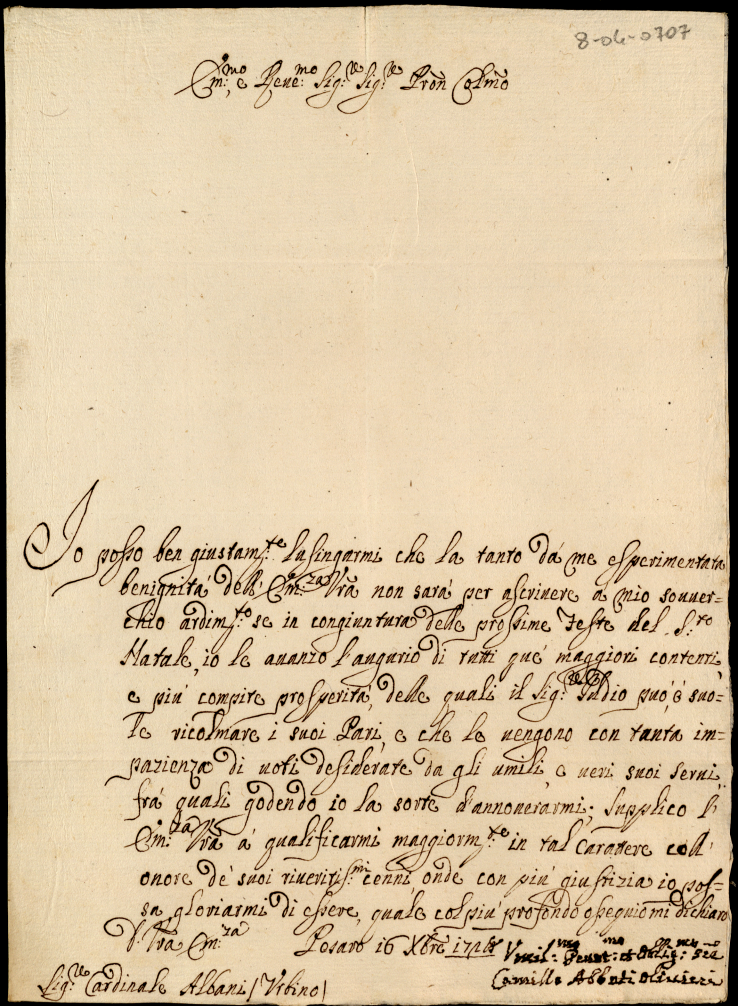 8-06-0707
Em:mo e Reue:mo Sig:re Sig:re Pron Colmo
Io posso ben giustam:te lusingarmi che la tanto dà me esperimentata
benignità dell' Em:za Vra non sarà per ascriuere a mio souuer=
chio ardim:to se in congiuntura delle prossime Feste del S:to
Natale, io le auanzo l'augurio di tutti què maggiori contenti
e più compite prosperità, delle quali il Sig:re Iddio può, è suo=
le ricolmare i suoi Pari, e che le uengono con tanta im=
pazienza di uoti desiderate da gli umili, e ueri suoi serui
frà quali godendo io la sorte d'annouerarmi; supplico l'
Em:za Vra à qualificarmi maggiorm:te in tal Carattere coll'
onore de' suoi riueritis:mi cenni, onde con più giustizia io pos=
sa gloriarmi di essere, quale col più profondo ossequio mi dichiaro
D. Vra Em:za Pesaro 16 Xbre
Vmil:mo Deuot:mo et Oblig:mo Ser
Camillo Abbati Oliuieri
Sig:re Cardinale Albani (Vrbino)